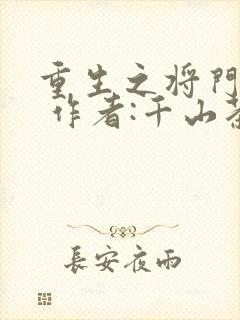 重生之将門
作者:千山
長安夜雨